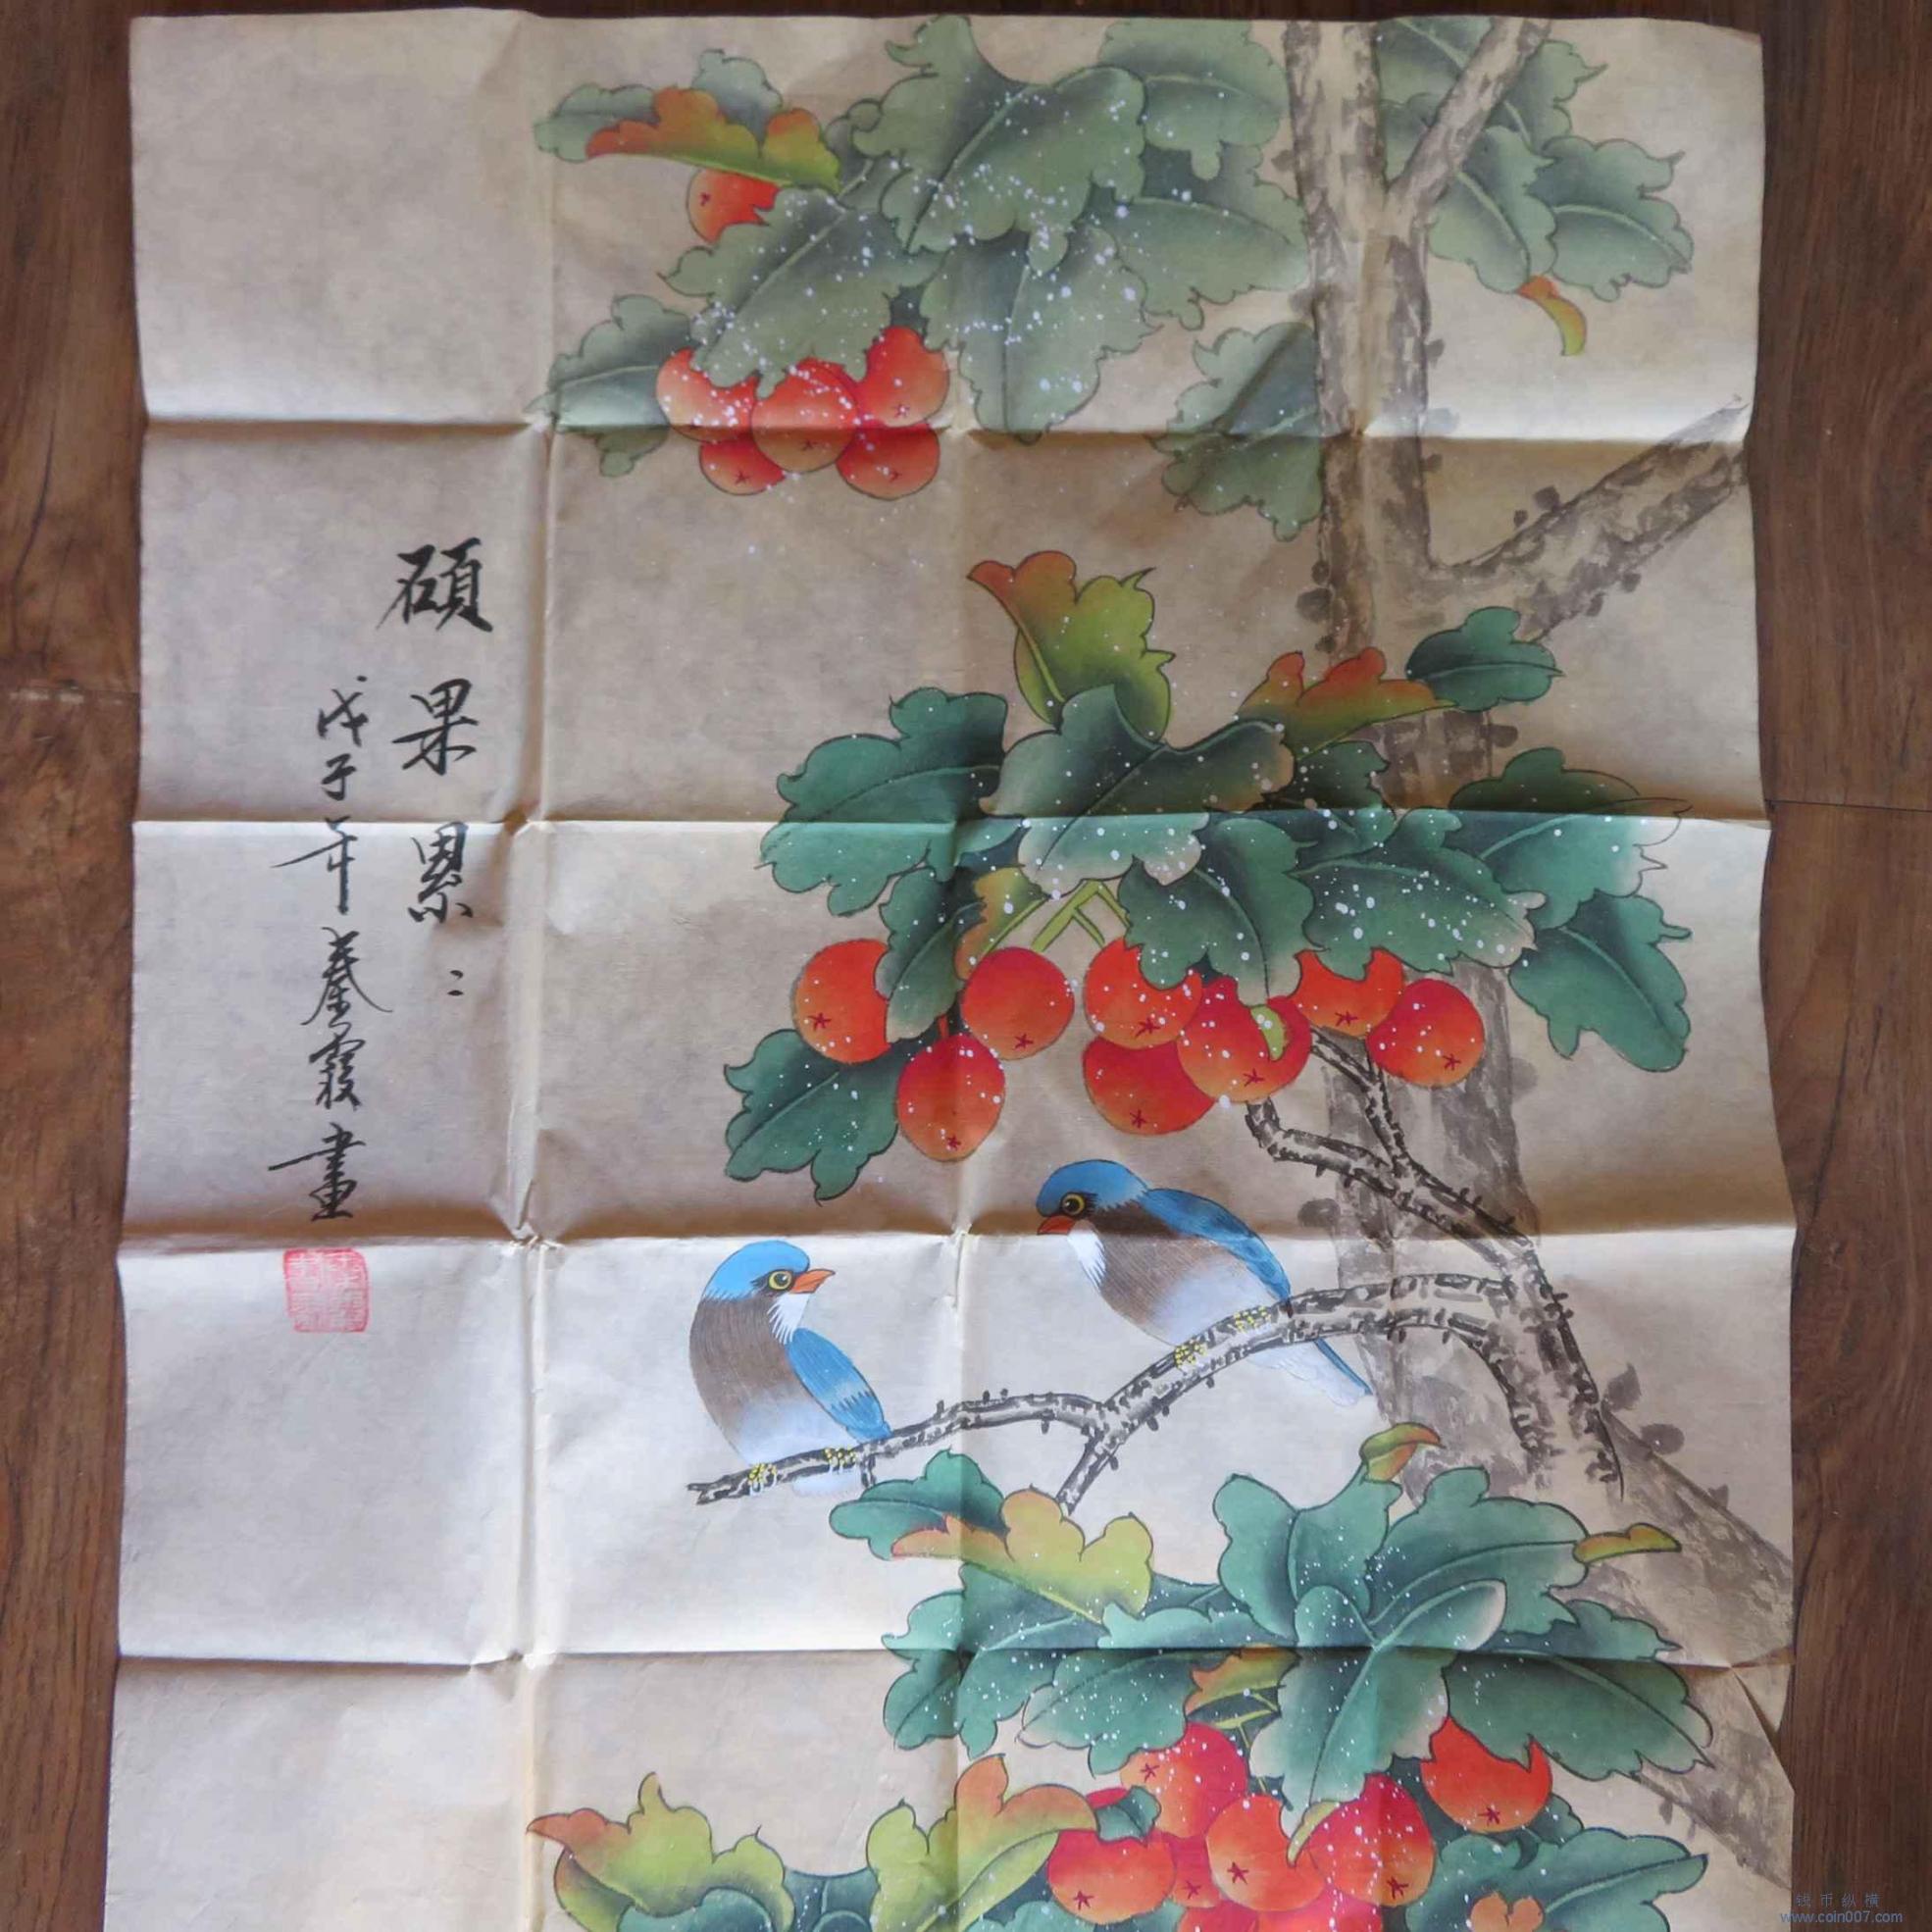 碩果累〻
戊子年秦霞畫
钱币纵横
www.coin007.com